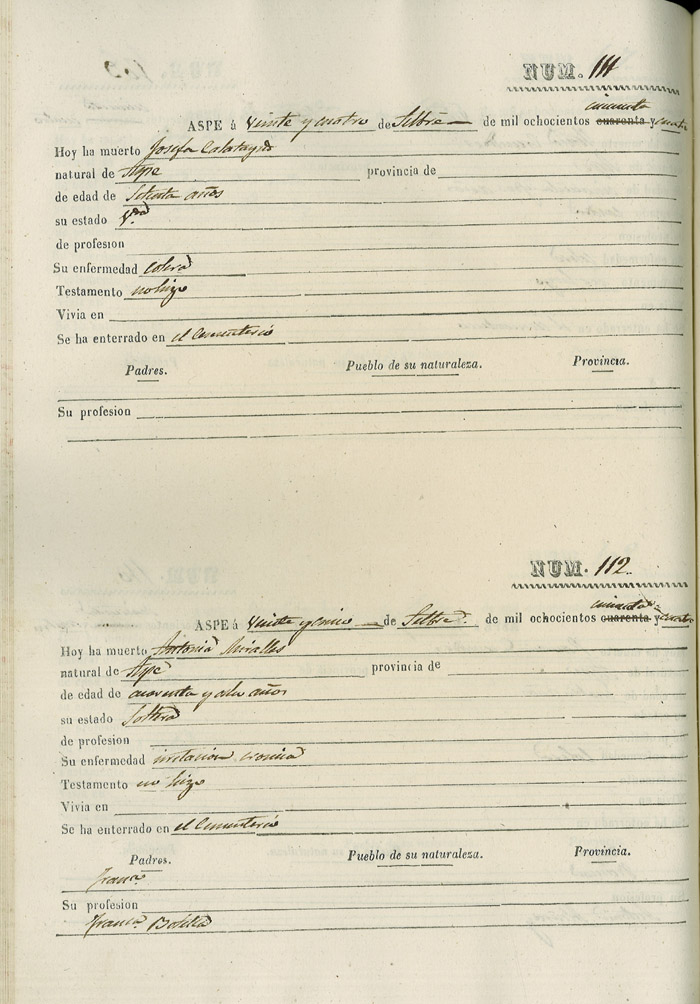 NUM. 111
cincuenta
ASPE á Veinte y cuatro de Setbre de mil ochocientos cuarenta y cuatro
Hoy ha muerto Josefa Calatayud
natural de Aspe provincia de
de edad de Setenta años
su estado Vda
de profesion
Su enfermedad colera
Testamento no hizo
Vivia en
Se ha enterrado en el Cementerio
Padres. Pueblo de su naturaleza. Provincia.
Su profesion
NUM. 112.
cincuenta
ASPE á Veinte y cinco de Setbre. de mil ochocientos cuarenta y cuatro
Hoy ha muerto Antonia Miralles
natural de Aspe provincia de
de edad de cuarenta y ocho años
su estado Soltera
de profesion
Su enfermedad irritacion cronica
Testamento no hizo
Vivia en
Se ha enterrado en el Cementerio
Padres. Pueblo de su naturaleza. Provincia.
Franco.
Su profesion
Franca. Botella